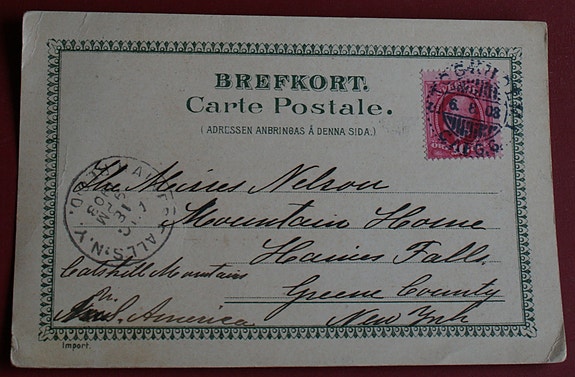 BREFKORT.
Carte Postale.
(ADRESSEN ANBRINGAS Å DENNA SIDA.)
6. 8 03
The Misses Nelson
Mountain Home
Haines Falls
Catskill Mountain
Greene County
N. America
New York
Import.